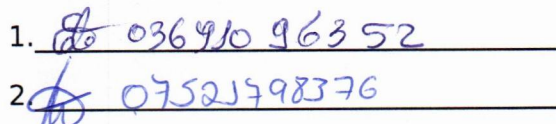 1. 03691096352
2. 07521798376